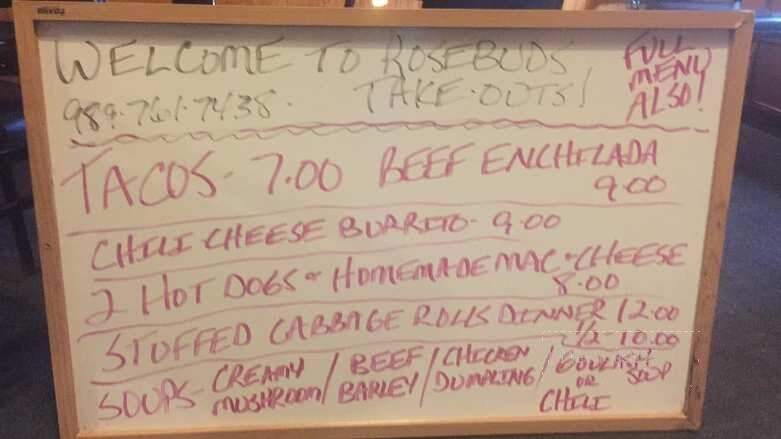 WELCOME TO ROSEBUDS
989.761.7435. TAKE-OUTS!
FULL
MENU
ALSO!
TACOS - 7.00 BEEF ENCHILADA
9.00
CHILI CHEESE BURRITO - 9.00
2 HOT DOGS & HOMEMADE MAC & CHEESE
8.00
STUFFED CABBAGE ROLLS DINNER 12.00
1/2 10.00
SOUPS - CREAMY MUSHROOM / BEEF BARLEY / CHICKEN DUMPLING / GOULASH SOUP
OR
CHILI